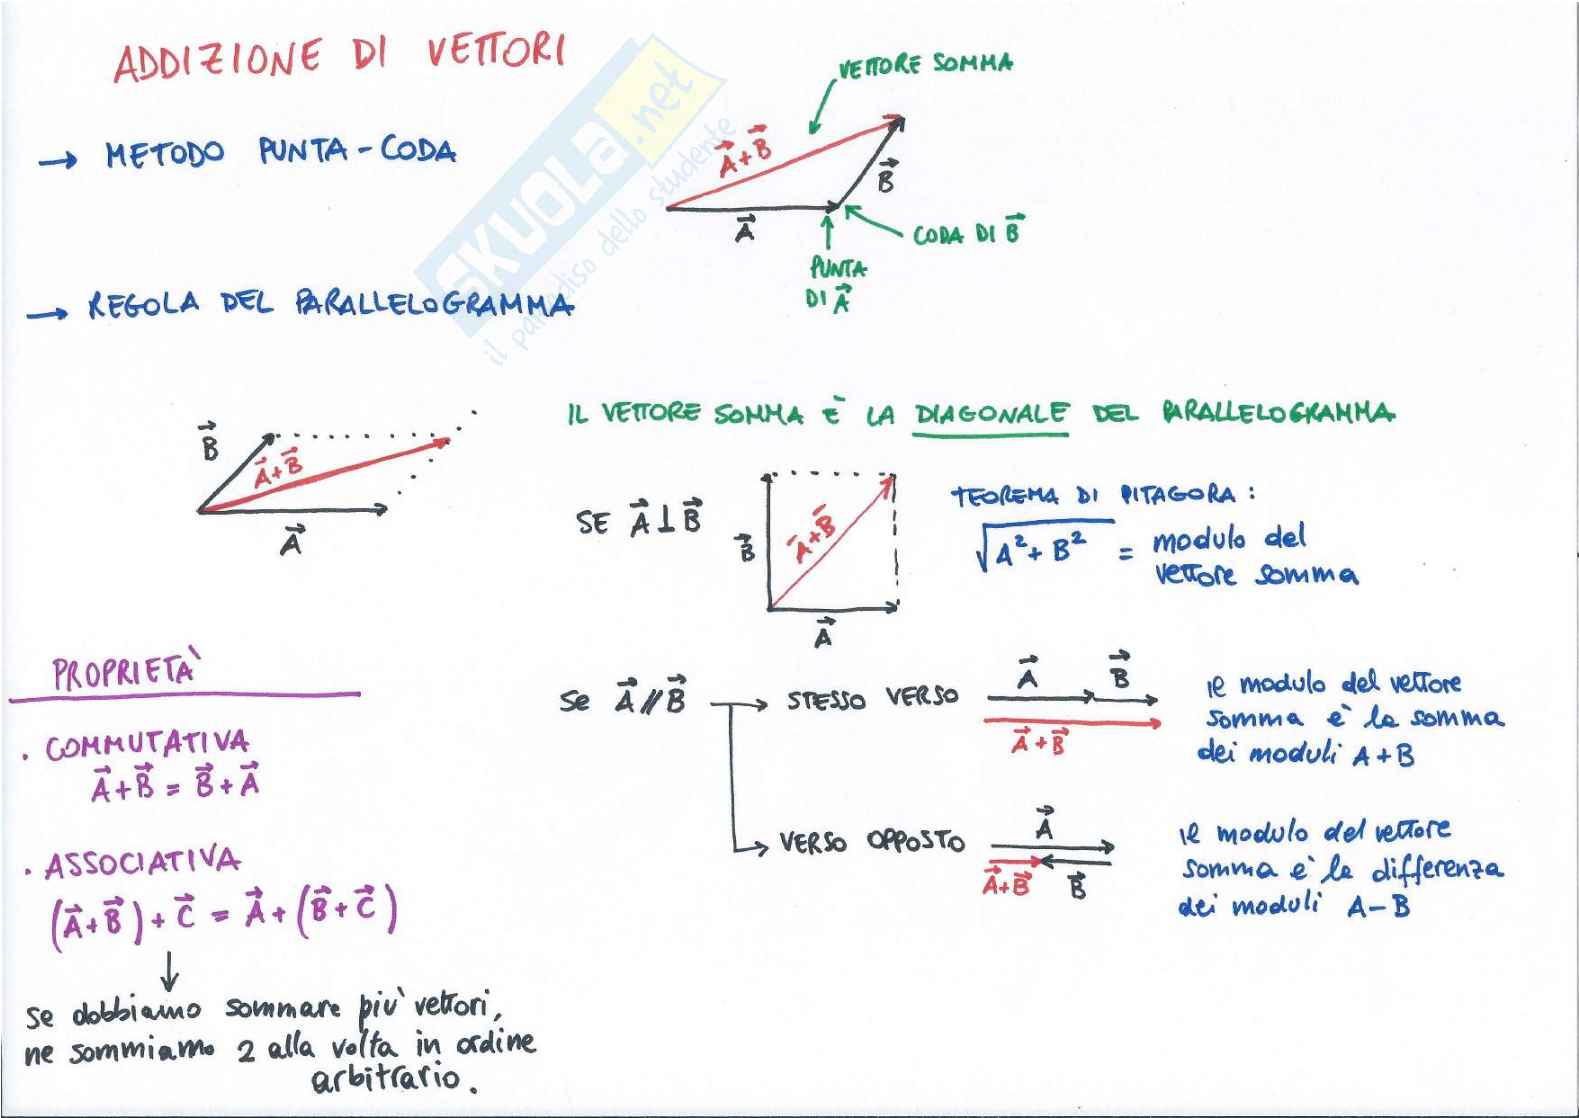 ADDIZIONE DI VETTORI
→ METODO PUNTA-CODA
VETTORE SOMMA
A⃗+B⃗
B⃗
A⃗
CODA DI B⃗
PUNTA
DI A⃗
→ REGOLA DEL PARALLELOGRAMMA
SKUOLA.net
il paradiso dello studente
IL VETTORE SOMMA È LA DIAGONALE DEL PARALLELOGRAMMA
B⃗
A⃗+B⃗
A⃗
SE A⃗ ⊥ B⃗
B⃗
A⃗+B⃗
A⃗
TEOREMA DI PITAGORA:
√A²+B² = modulo del
vettore somma
PROPRIETÀ
. COMMUTATIVA
A⃗+B⃗ = B⃗+A⃗
. ASSOCIATIVA
(A⃗+B⃗)+C⃗ = A⃗+(B⃗+C⃗)
Se dobbiamo sommare più vettori,
ne sommiamo 2 alla volta in ordine
arbitrario.
Se A⃗ // B⃗
→ STESSO VERSO
A⃗ B⃗
A⃗+B⃗
il modulo del vettore
somma è la somma
dei moduli A+B
→ VERSO OPPOSTO
A⃗
A⃗+B⃗ B⃗
il modulo del vettore
somma è la differenza
dei moduli A-B